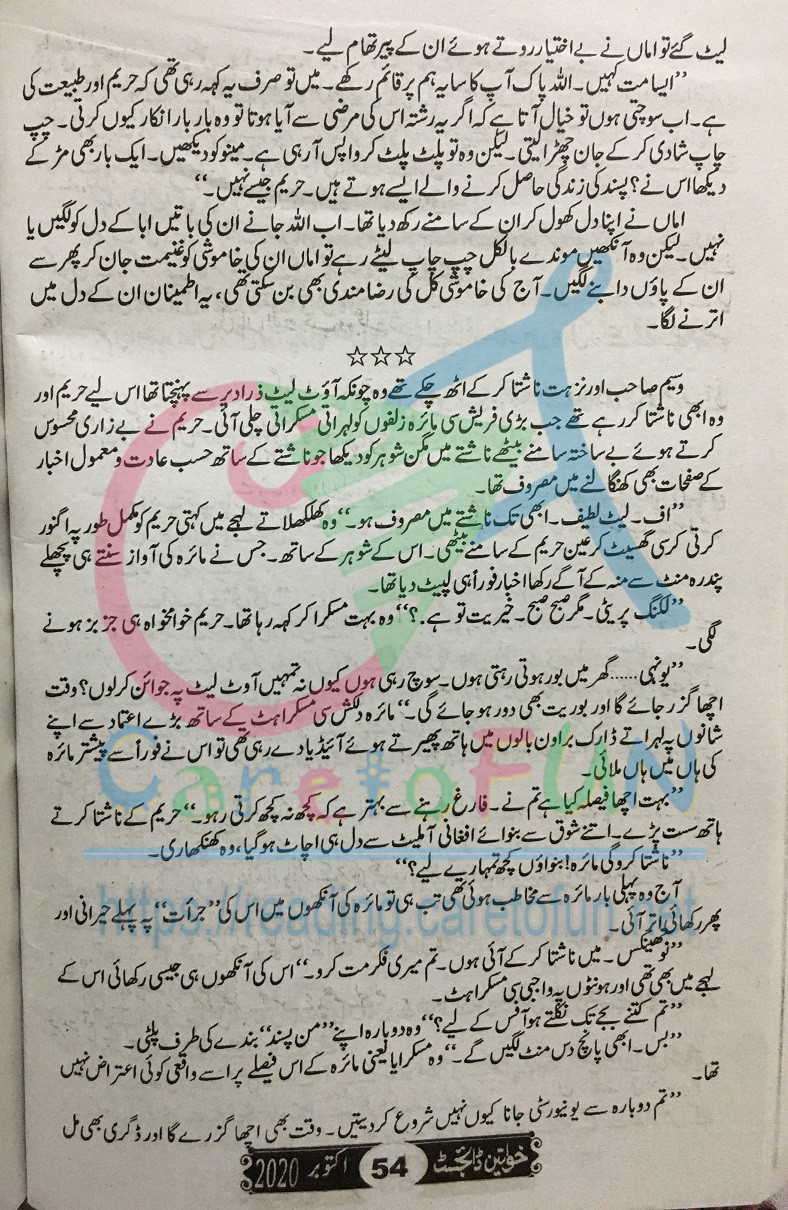 لیٹ گئے تو اماں نے بے اختیار روتے ہوئے ان کے پیر تھام لیے۔
”ایسا مت کہیں۔ اللہ پاک آپ کا سایہ ہم پر قائم رکھے۔ میں تو صرف یہ کہہ رہی تھی کہ حریم اور طبیعت کی
ہے۔ اب سوچتی ہوں تو خیال آتا ہے کہ اگر یہ رشتہ اس کی مرضی سے آیا ہوتا تو وہ بار بار انکار کیوں کرتی۔ چپ
چاپ شادی کر کے جان چھڑا لیتی۔ لیکن وہ تو پلٹ پلٹ کر واپس آ رہی ہے۔ مینو کو دیکھیں۔ ایک بار بھی مڑ کے
دیکھا اس نے؟ پسند کی زندگی حاصل کرنے والے ایسے ہوتے ہیں۔ حریم جیسے نہیں۔“
اماں نے اپنا دل کھول کر ان کے سامنے رکھ دیا تھا۔ اب اللہ جانے ان کی باتیں ابا کے دل کو لگیں یا
نہیں۔ لیکن وہ آنکھیں موندے بالکل چپ چاپ لیٹے رہے تو اماں ان کی خاموشی کو غنیمت جان کر پھر سے
ان کے پاؤں دابنے لگیں۔ آج کی خاموشی کل کی رضامندی بھی بن سکتی تھی، یہ اطمینان ان کے دل میں
اترنے لگا۔
☆☆☆
وسیم صاحب اور نزہت ناشتا کر کے اٹھ چکے تھے وہ چونکہ آؤٹ لیٹ ذرا دیر سے پہنچتا تھا اس لیے حریم اور
وہ ابھی ناشتا کر رہے تھے جب بڑی فریش سی مائرہ زلفوں کو لہراتی مسکراتی چلی آئی۔ حریم نے بے زاری محسوس
کرتے ہوئے بے ساختہ سامنے بیٹھے ناشتے میں مگن شوہر کو دیکھا جو ناشتے کے ساتھ حسب عادت و معمول اخبار
کے صفحات بھی کھنگالنے میں مصروف تھا۔
”اف۔ لیٹ لطیف۔ ابھی تک ناشتے میں مصروف ہو۔“ وہ کھلکھلاتے لہجے میں کہتی حریم کو مکمل طور پہ اگنور
کرتی کرسی گھسیٹ کر عین حریم کے سامنے بیٹھی۔ اس کے شوہر کے ساتھ۔ جس نے مائرہ کی آواز سنتے ہی پچھلے
پندرہ منٹ سے منہ کے آگے رکھا اخبار فوراً ہی لپیٹ دیا تھا۔
”لکنگ پریٹی۔ مگر صبح صبح۔ خیریت تو ہے.؟“ وہ بہت مسکرا کر کہہ رہا تھا۔ حریم خوامخواہ ہی جزبز ہونے
لگی۔
”یونہی...... گھر میں بور ہوتی رہتی ہوں۔ سوچ رہی ہوں کیوں نہ تمہیں آوٹ لیٹ پہ جوائن کر لوں؟ وقت
اچھا گزر جائے گا اور بوریت بھی دور ہو جائے گی۔“ مائرہ دلکش سی مسکراہٹ کے ساتھ بڑے اعتماد سے اپنے
شانوں پہ لہراتے ڈارک براون بالوں میں ہاتھ پھیرتے ہوئے آئیڈیا دے رہی تھی تو اس نے فوراً سے پیشتر مائرہ
کی ہاں میں ہاں ملائی۔
”بہت اچھا فیصلہ کیا ہے تم نے۔ فارغ رہنے سے بہتر ہے کہ کچھ نہ کچھ کرتی رہو۔“ حریم کے ناشتا کرتے
ہاتھ ست پڑے۔ اتنے شوق سے بنوائے افغانی آملیٹ سے دل ہی اچاٹ ہو گیا، وہ کھنکھاری۔
”ناشتا کرو گی مائرہ! بنواؤں کچھ تمہارے لیے؟“
آج وہ پہلی بار مائرہ سے مخاطب ہوئی تھی تب ہی تو مائرہ کی آنکھوں میں اس کی ”جرأت“ پہ پہلے حیرانی اور
پھر رکھائی اتر آئی۔
”نو تھینکس۔ میں ناشتا کر کے آئی ہوں۔ تم میری فکر مت کرو۔“ اس کی آنکھوں ہی جیسی رکھائی اس کے
لہجے میں بھی تھی اور ہونٹوں پہ واجبی سی مسکراہٹ۔
”تم کتنے بجے تک نکلتے ہو آفس کے لیے؟“ وہ دوبارہ اپنے ”من پسند“ بندے کی طرف پلٹی۔
”بس۔ ابھی پانچ دس منٹ لگیں گے۔“ وہ مسکرایا یعنی مائرہ کے اس فیصلے پر اسے واقعی کوئی اعتراض نہیں
تھا۔
”تم دوبارہ سے یونیورسٹی جانا کیوں نہیں شروع کر دیتیں۔ وقت بھی اچھا گزرے گا اور ڈگری بھی مل
خواتین ڈائجسٹ 54 اکتوبر 2020
CaretoFUN
https://reading.caretofun.net